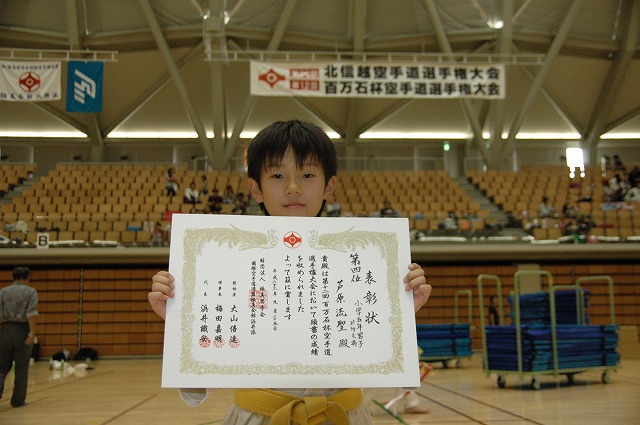 北信越空手道選手権大会
百万石杯空手道選手権大会
B
表彰状
小学五年男子
第四位
芦原流聖殿
貴殿は第十二回百万石杯空手道
選手権大会において頭書の成績
を収められました
よって茲に賞します
財団法人 極真奨学会
大山倍達
梅田嘉明
代表 浜井識安